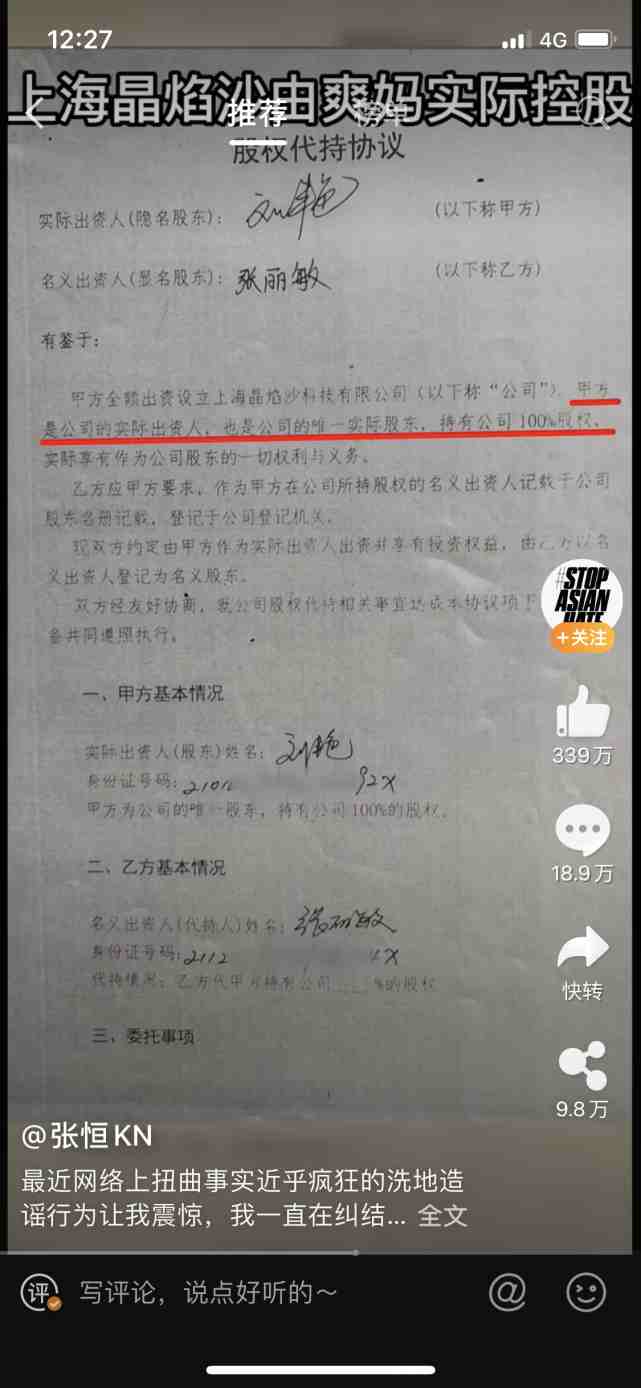 12:27
4G
上海晶焰沙由爽妈实际控股
推荐
榜单
股权代持协议
实际出资人(隐名股东)： (以下称甲方)
名义出资人(显名股东)：张丽敏 (以下称乙方)
有鉴于：
甲方全额出资设立上海晶焰沙科技有限公司（以下称“公司”），甲方
是公司的实际出资人，也是公司的唯一实际股东，持有公司100%股权，
实际享有作为公司股东的一切权利与义务。
乙方应甲方要求，作为甲方在公司所持股权的名义出资人记载于公司
股东名册记载，登记于公司登记机关。
现双方约定由甲方作为实际出资人出资并享有投资权益，由乙方以名
义出资人登记为名义股东。
双方经友好协商，就公司股权代持相关事宜达成本协议项下
备共同遵照执行。
#STOP
ASIAN
HATE
+关注
一、甲方基本情况
339万
实际出资人(股东)姓名：
身份证号码：2101 92X
甲方为公司的唯一股东，持有公司100%的股权。
18.9万
二、乙方基本情况
名义出资人(代持人)姓名：张丽敏
身份证号码：2112 X
代持情况：乙方代甲方持有公司____%的股权
快转
三、委托事项
9.8万
@张恒KN
最近网络上扭曲事实近乎疯狂的洗地造
谣行为让我震惊，我一直在纠结... 全文
评
写评论，说点好听的～
@